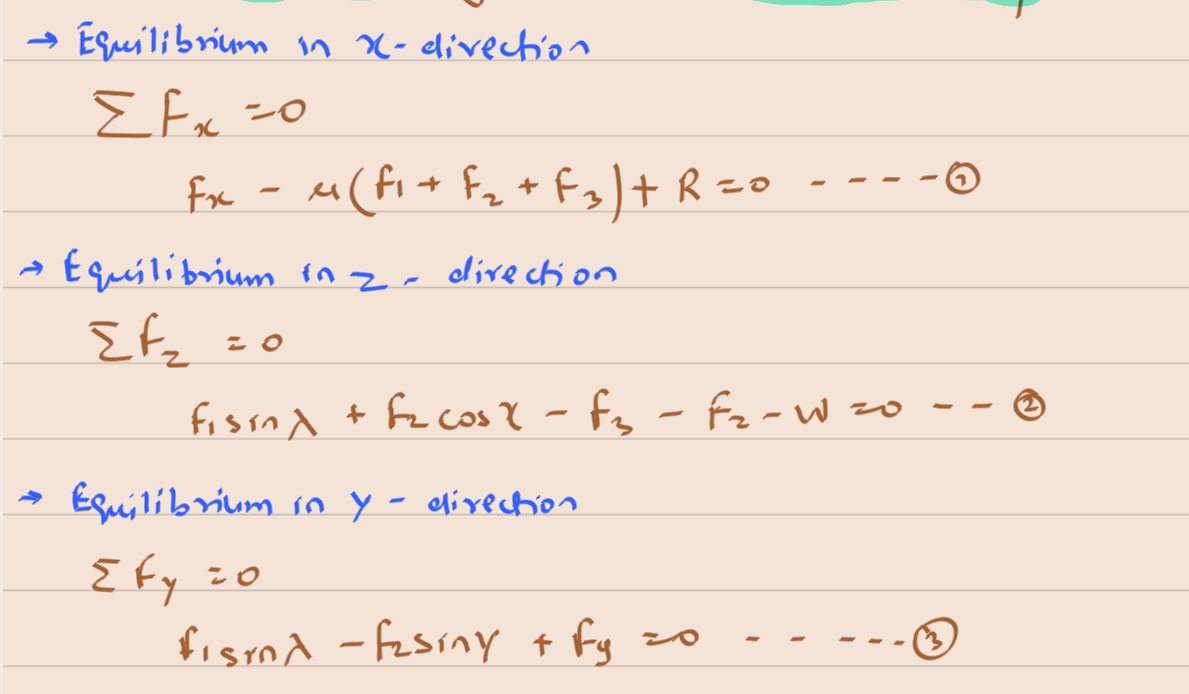 → Equilibrium in x-direction
ΣFx =0
Fx - μ(F1 + F2 + F3) + R =0 - - - - -①
→ Equilibrium in z - direction
ΣFz =0
F1 sinλ + F2 cosγ - F3 - Fz - W =0 - - ②
→ Equilibrium in y - direction
ΣFy =0
F1 sinλ - F2 sinγ + Fy =0 - - - - - -③